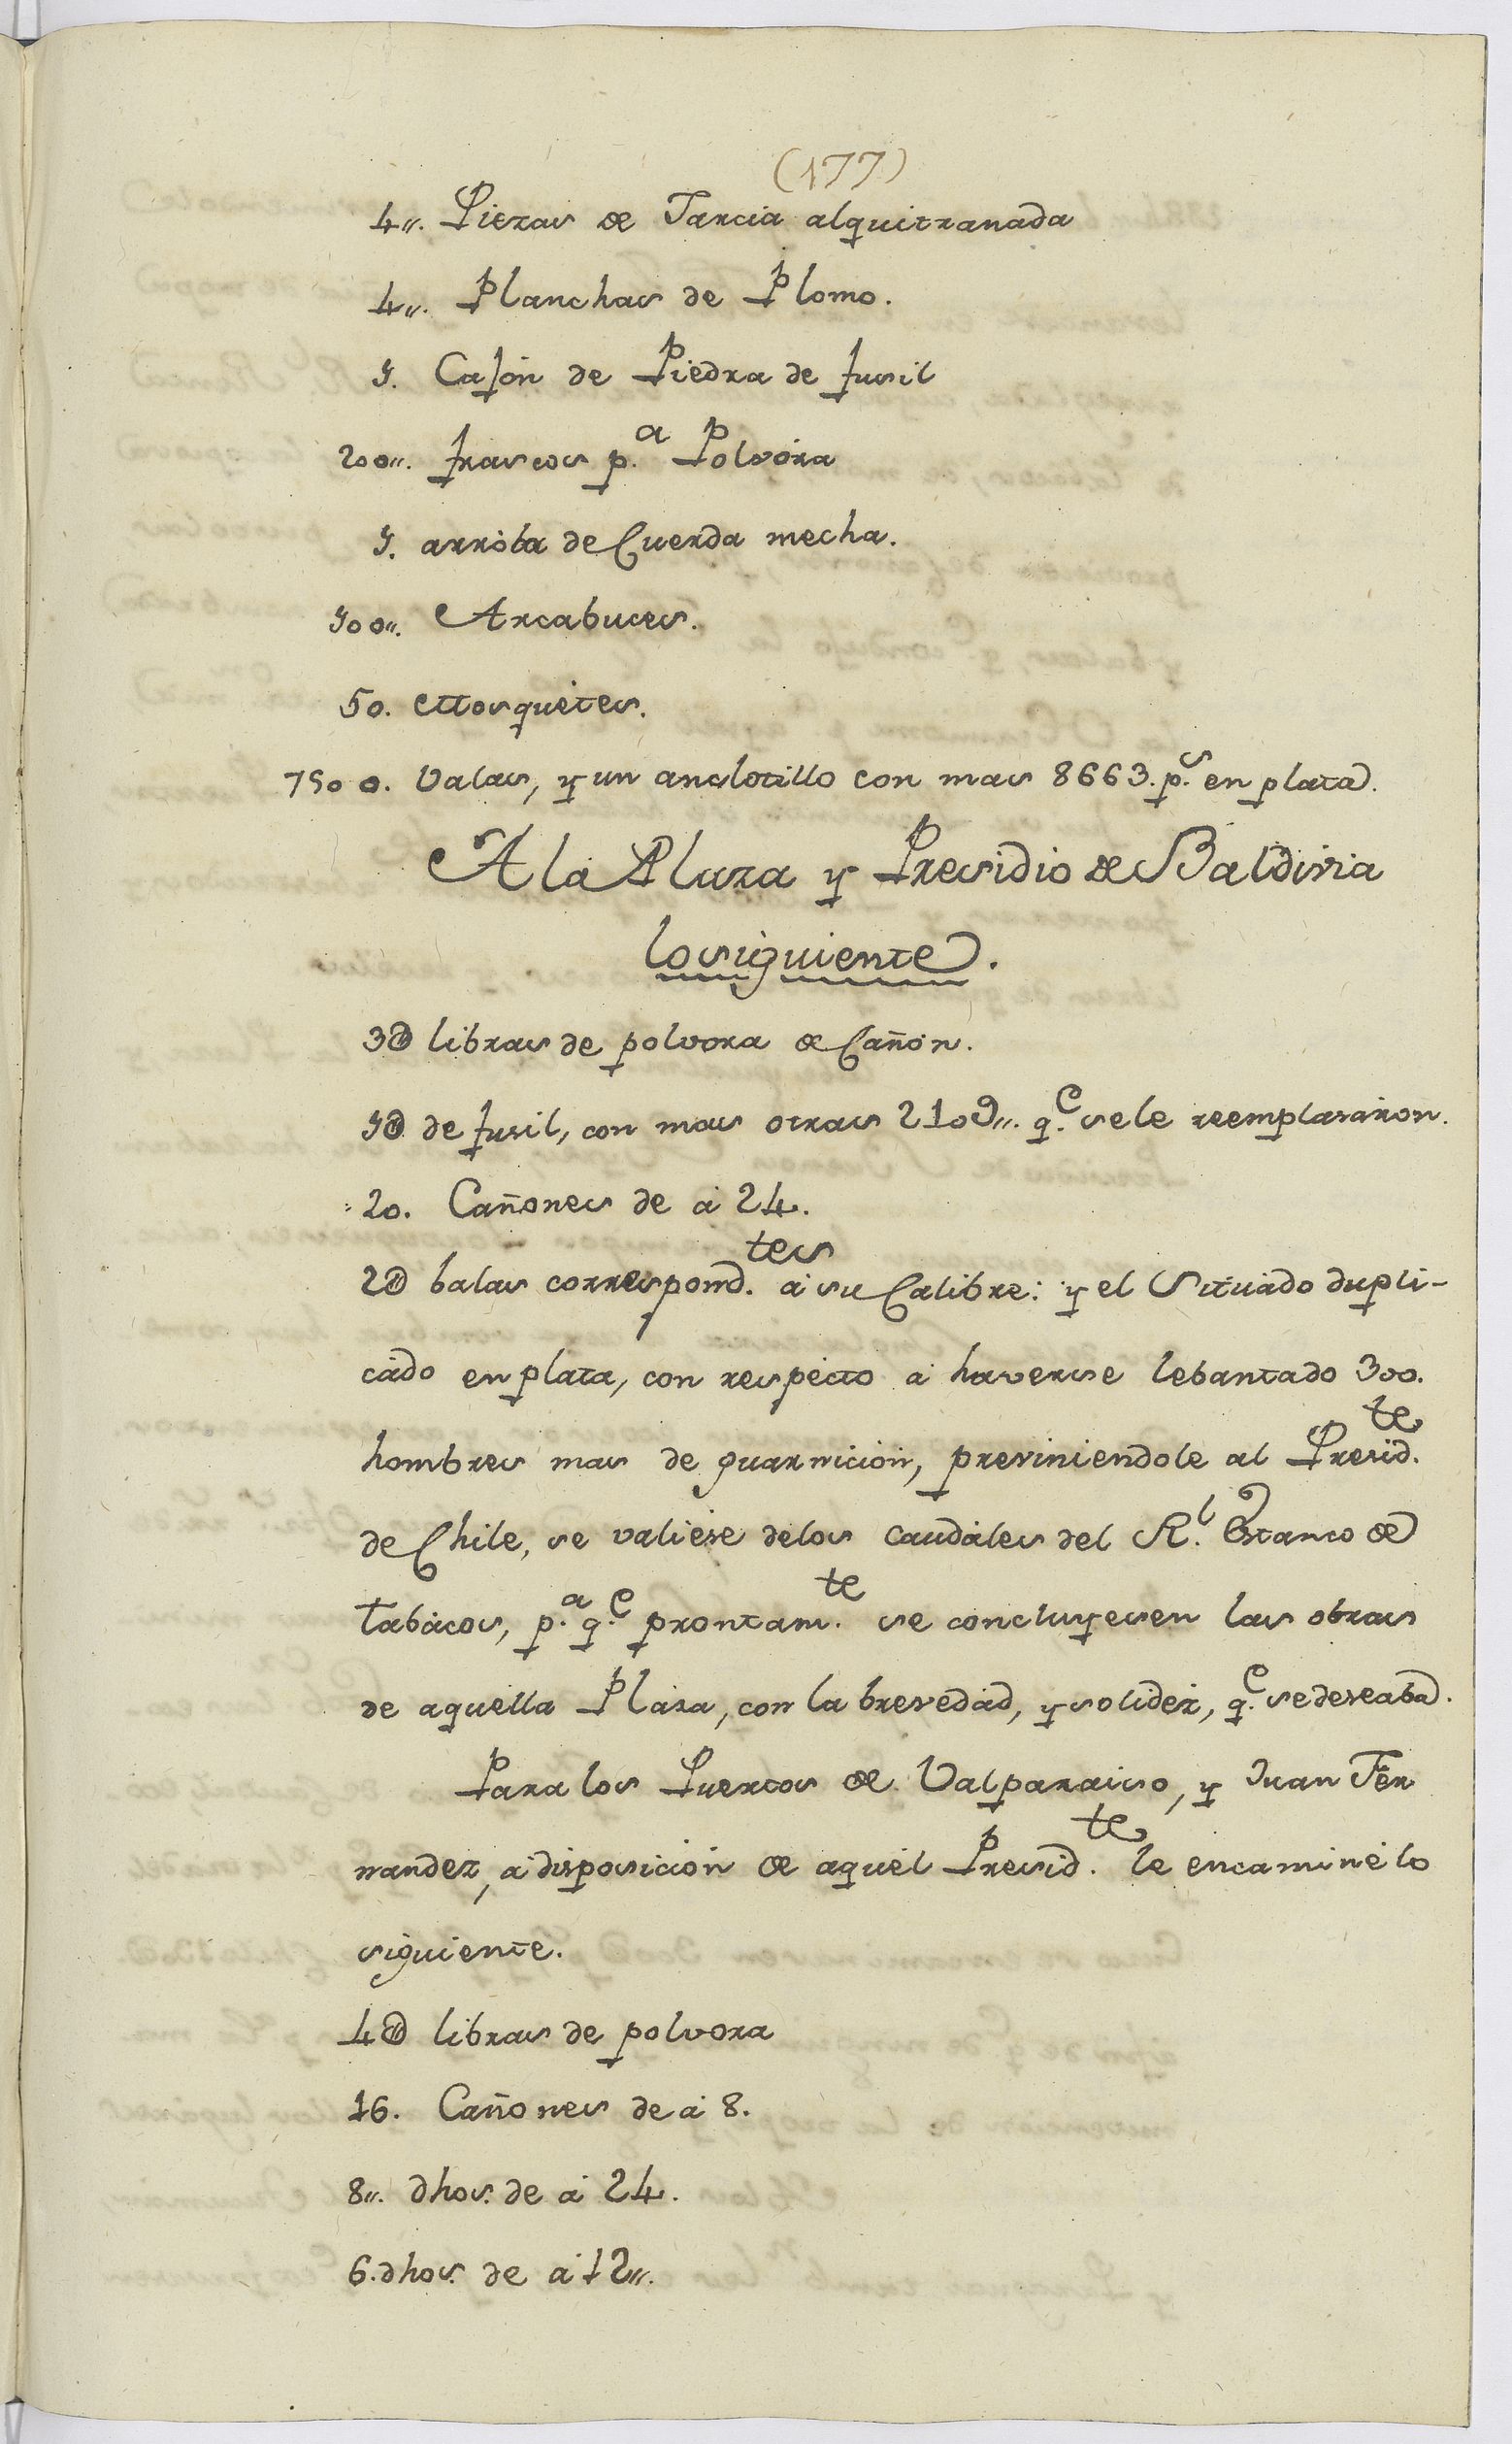 (177)
4,,. Piezas de Jarcia alquitranada
4,,. Planchas de Plomo.
1. Cajón de Piedra de fusil
200,,. frascos p.ª Polvora
1. arroba de Cuerda mecha.
100,,. Arcabuces.
50. Mosquetes.
7500. Valas, y un anclotillo con mas 8663. p.s en plata.
A la Plaza y Presidio de Baldivia
lo siguiente.
3@ libras de polvora de Cañon.
1@ de fusil, con mas otras 2109,,. q.e se le reemplasaron.
20. Cañones de á 24.
2@ balas correspond.tes á su Calibre: y el Situado dupli-
cado en plata, con respecto á haverse lebantado 300.
hombres mas de guarnicion, previniendole al Presid.te
de Chile, se valiese delos caudales del R.l Estanco de
tabacos, p.a q.e prontam.te se concluyesen las obras
de aquella Plaza, con la brevedad, y solidez, q.e se deseaba.
Para los Puertos de Valparaiso, y Juan Fer
nandez, á disposicion de aquel Presid.te le encaminé lo
siguiente.
4@ libras de polvora
16. Cañones de á 8.
8,,. dhos. de á 24.
6. dhos. de á 12,,.